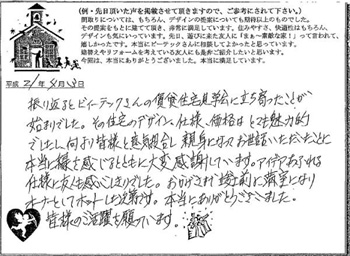 (例・先日頂いた声を掲載させて頂きますので、ご参考にされて下さい。)
間取りについては、もちろん、デザインの提案についても期待以上のものでした。
その提案をもとに建てて頂き、非常に満足しています。住みやすさ、快適性はもちろん、
デザインも気にいっています。先日、遊びにきた友人に「まぁー素敵な家!」って言われて、
嬉しかったです。本当にビーテックさんに相談してよかったと思っています。
建替えやリフォームを考えている友人にも是非ご紹介したいと思います。
今回は、本当にありがとうございました。本当に満足しています。
平成 21年 4月 13日
振り返るとビーテックさんの賃貸住宅見学会に立ち寄ったことが
始まりでした。その住宅のデザイン、仕様、価格はとても魅力的
でしたし、何より皆様と意気投合し親身になってお世話いただいたことに
本当に縁を感じるとともに大変感謝しています。アイデアあふれる
仕様に友人も感心しきりでした。おかげさまで竣工前に満室になり
オーナーとしてホットした次第です。本当にありがとうございました。
皆様のご活躍を願っています。